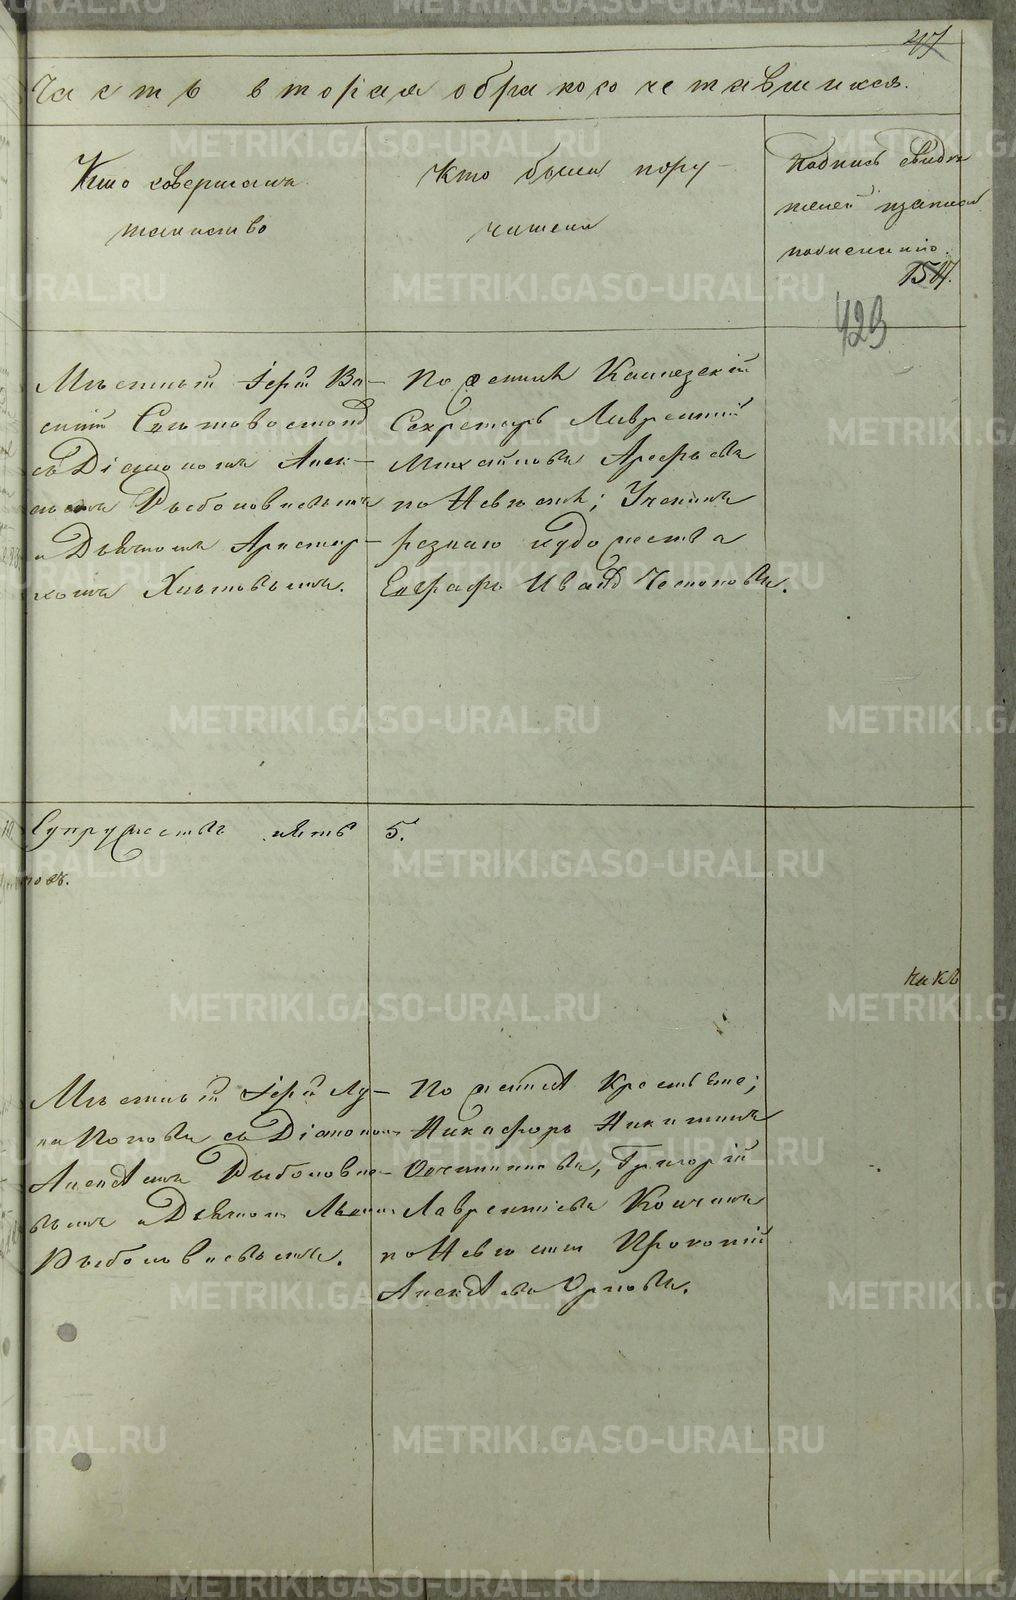 47
Часть вторая о бракосочетавшихся.
Кто совершалъ
таинство
Кто были пору-
чители
Подпись свидѣ
телей записи
по желанію.
429
Мѣстный Іерей Ва-
силій Словцовъ
съ Діакономъ Алек-
сѣемъ Рыболовлевымъ
и Дьячкомъ Аристар-
хомъ Хлыновымъ.
По женихѣ Коллежскій
Секретарь Лаврентій
Михайловъ Арефьевъ
по Невѣстѣ; Ученикъ
рознаго художества
Евграфъ Ивановъ
Супружествъ пять 5.
Мѣстный Іерей Лу-
ка Поповъ съ Діакономъ
Алексѣемъ Рыболовле-
вымъ и Дьячкомъ
Рыболовлевымъ.
По женихѣ Крестьяне;
Никифоръ Никитинъ
Овчинниковъ, Григорій
Лаврентіевъ
по Невѣстѣ Прокопій
Алексѣевъ Орловъ.
METRIKI.GASO-URAL.RU